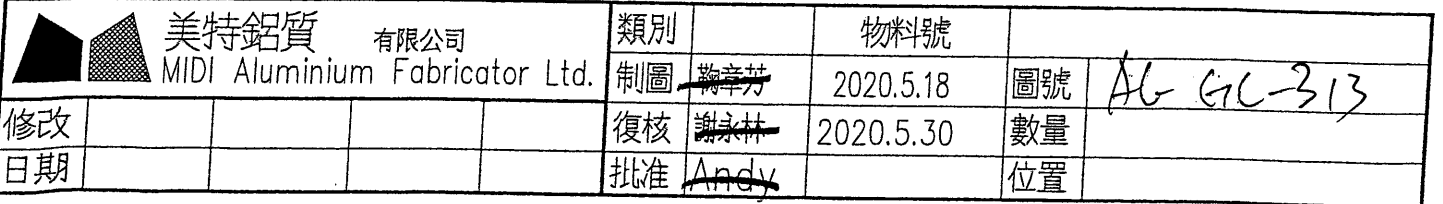 美特鋁質 有限公司
MIDI Aluminium Fabricator Ltd.
修改
日期
類別 物料號
制圖 鞠章芬 2020.5.18 圖號 AG GC-313
復核 謝永林 2020.5.30 數量
批准 Andy 位置